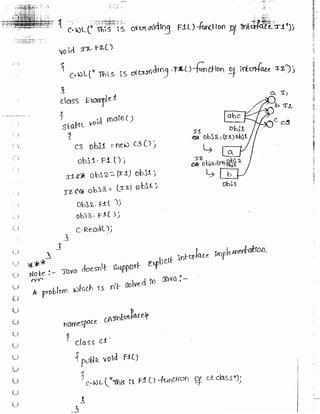 {
C.WL(" This is overriding F1() function of interface I1");
}
void I2.F2()
{
C.WL(" This is overriding F2() function of interface I2");
}
}
class Example1
{
static void main()
{
C3 obj1 = new C3();
obj1. F1();
I1 obj2 = (I1) obj1;
I2 obj3 = (I2) obj1;
obj2. F1();
obj3. F1();
C.Read();
}
}
a I1
b I2
c C3
abc
obj1
I1
obj2=(I1)obj1
a
I2
b
obj3
***
Note :- Java doesn't support Explicit interface implementation.
A problem which is n't solved in Java :-
namespace
{
class C1
{
public void F1()
{
C.WL("This is F1() function of C1 class");
}
}